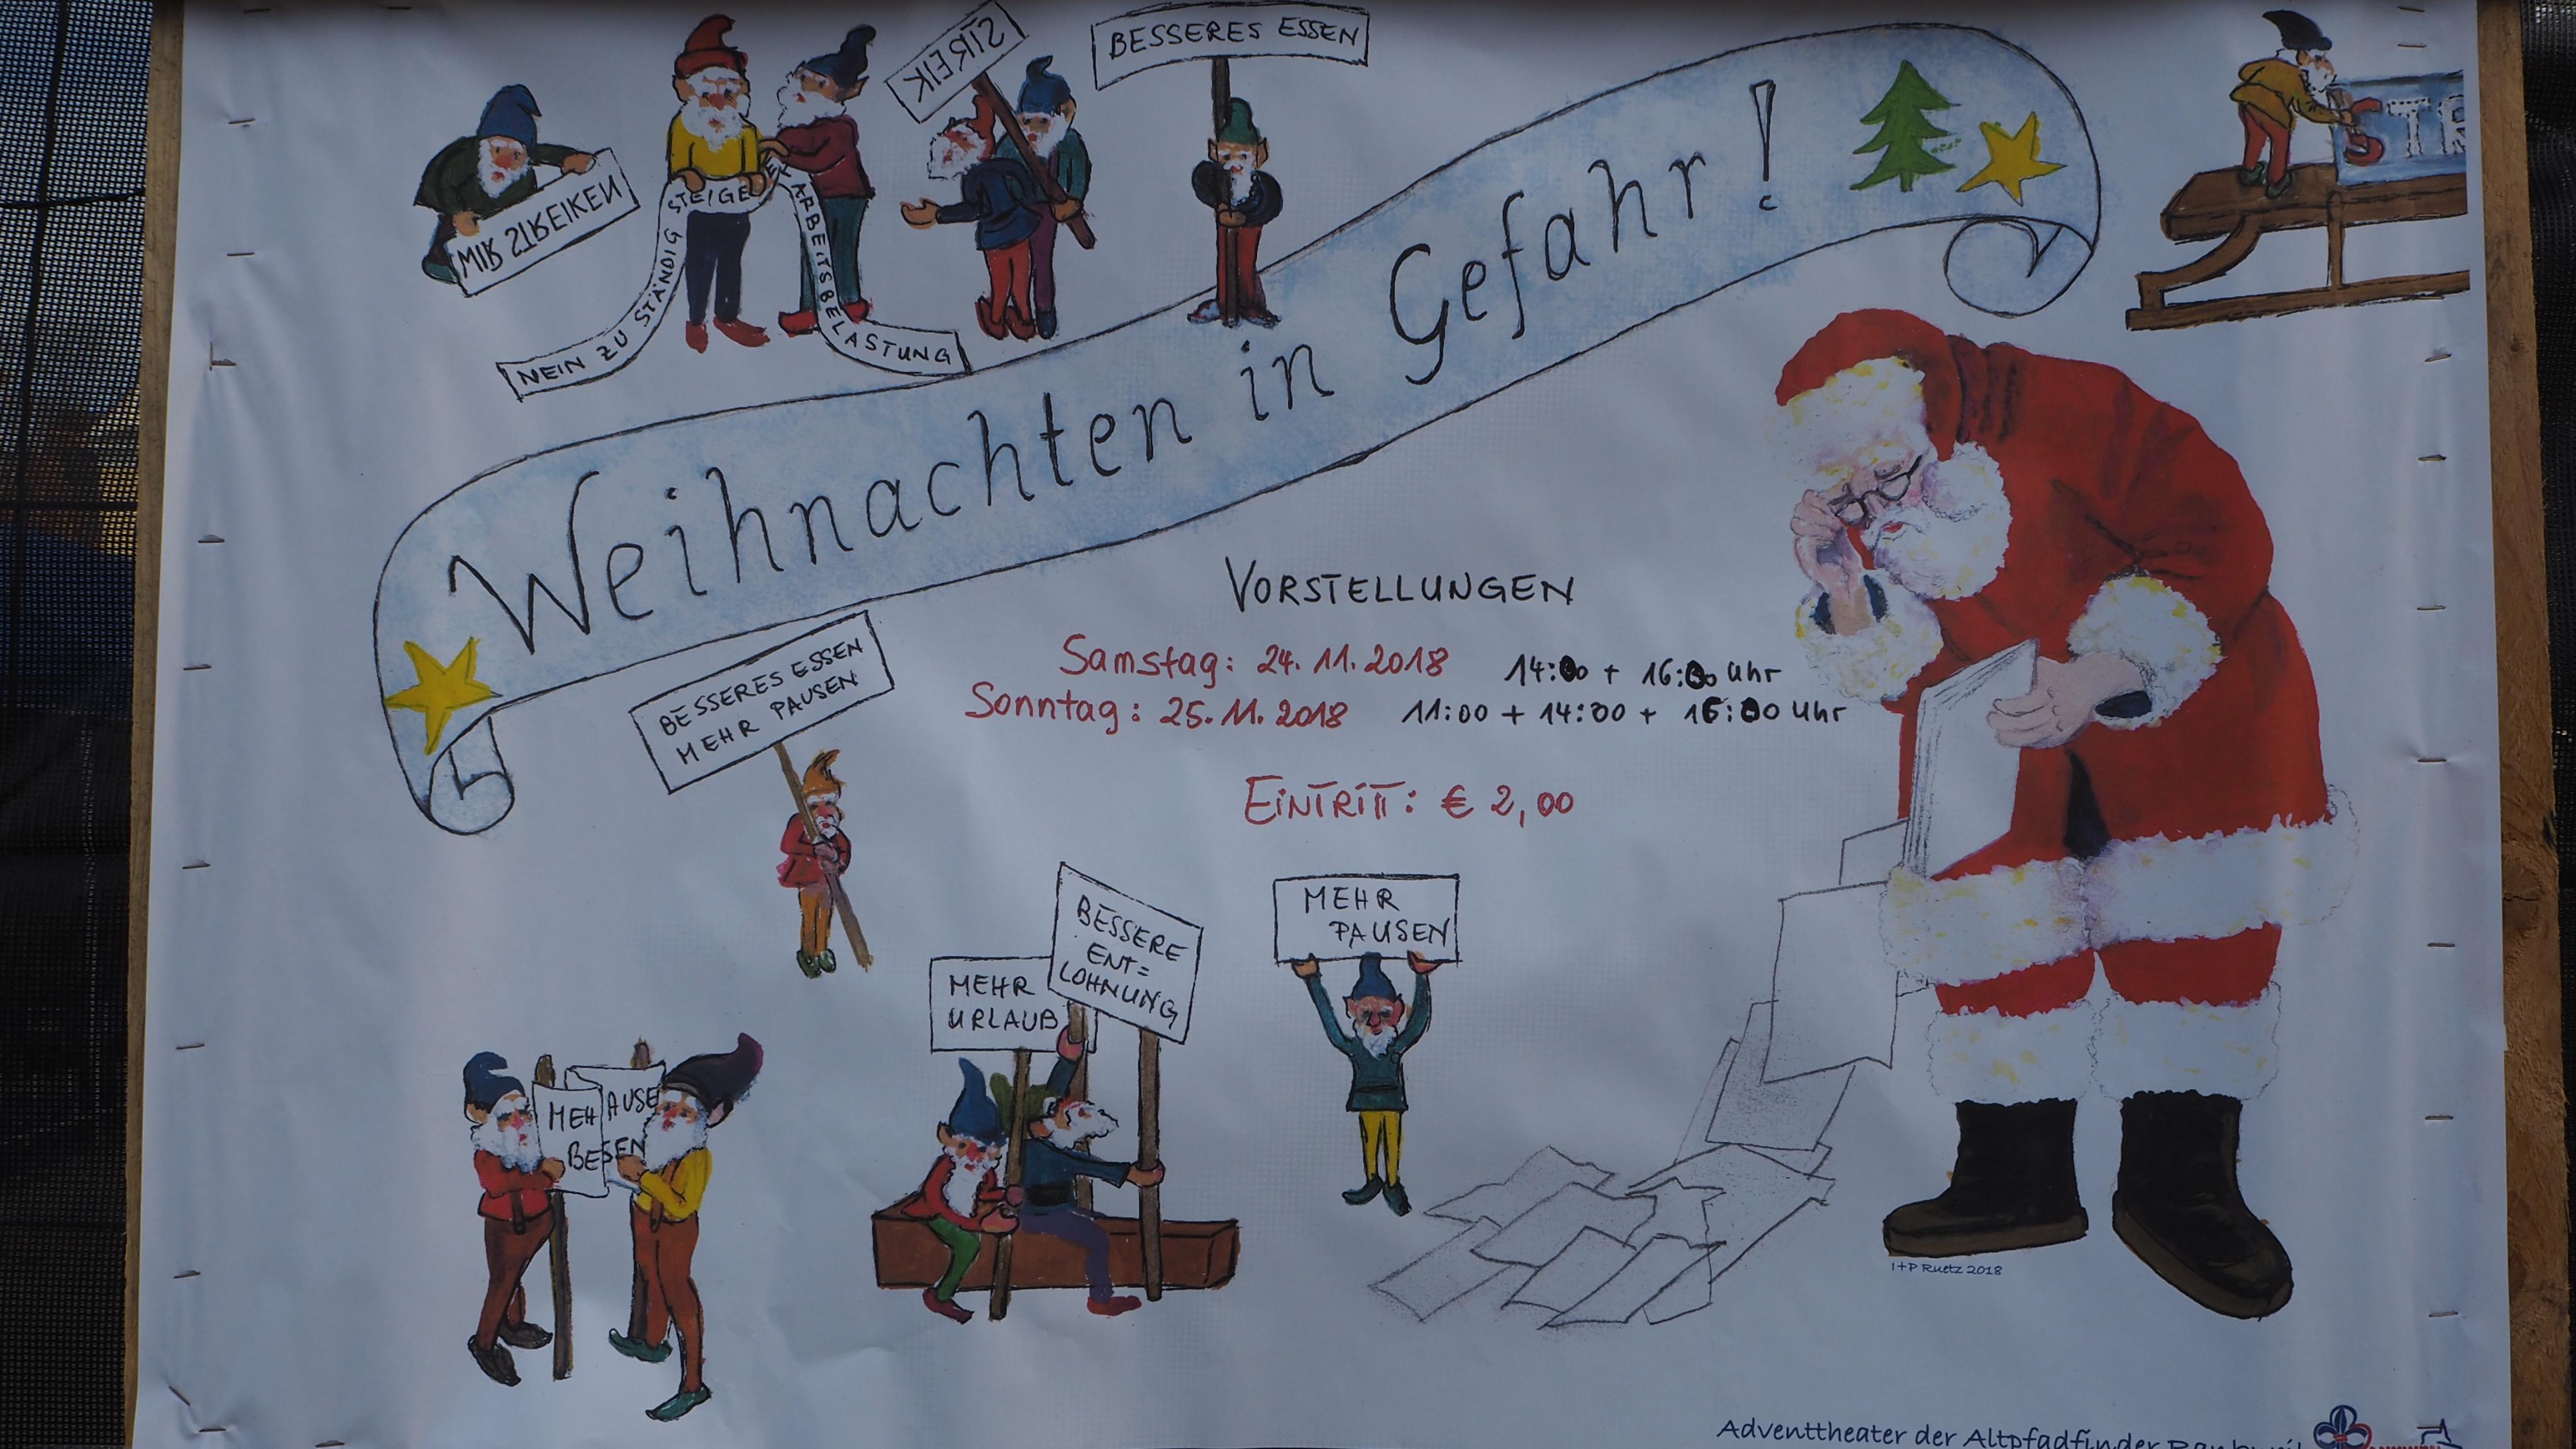 MIR STREIKEN
NEIN ZU STÄNDIG STEIGE ARBEITSBELASTUNG
STREIK
BESSERES ESSEN
STR
Weihnachten in Gefahr!
VORSTELLUNGEN
Samstag: 24.11.2018 14:00 + 16:00 Uhr
Sonntag: 25.11.2018 11:00 + 14:00 + 16:00 Uhr
EINTRITT: € 2,00
BESSERES ESSEN
MEHR PAUSEN
MEHR
URLAUB
BESSERE
ENT=
LOHNUNG
MEHR
PAUSEN
MEH AUSE
BE SEN
I+P Ruetz 2018
Adventtheater der Altpfadfinder Rankweil